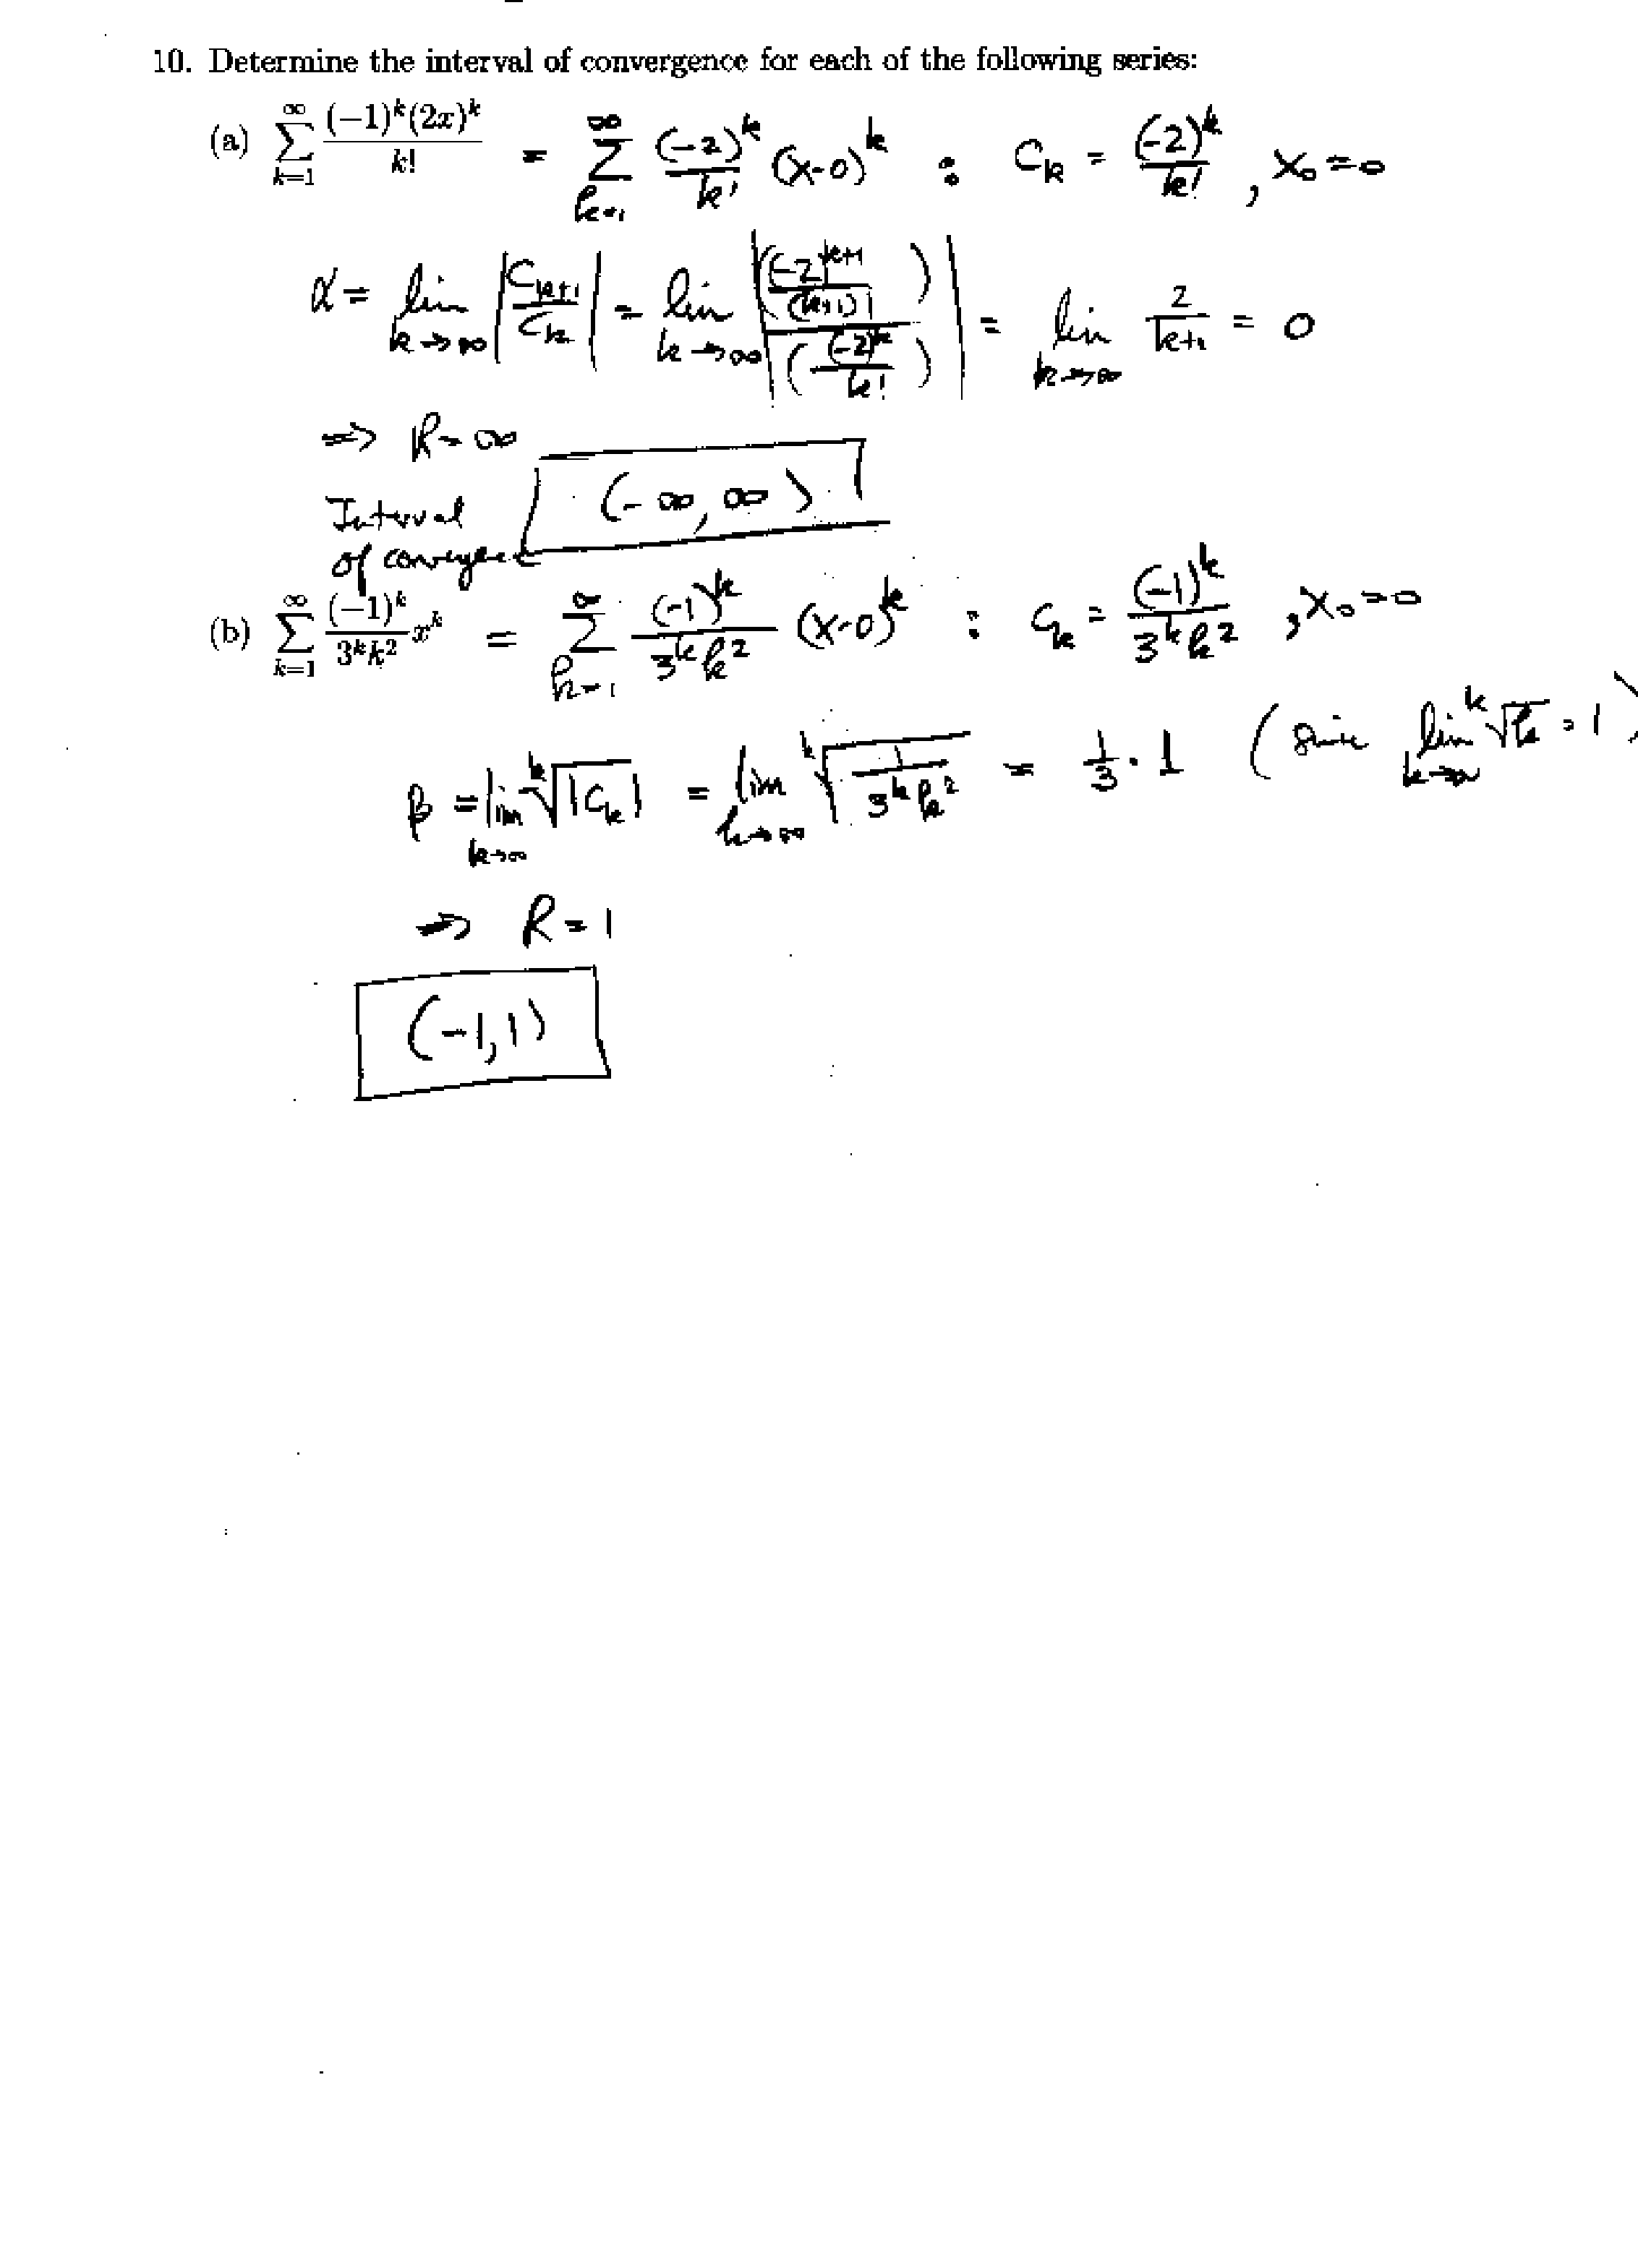 10. Determine the interval of convergence for each of the following series:
(a) $\sum_{k=1}^{\infty} \frac{(-1)^k(2x)^k}{k!}$ = $\sum_{k=1}^{\infty} \frac{(-2)^k}{k!} (x-0)^k$ : $C_k = \frac{(-2)^k}{k!}$, $x_0 = 0$
$\alpha = \lim_{k \to \infty} \left| \frac{C_{k+1}}{C_k} \right| = \lim_{k \to \infty} \left| \frac{\left( \frac{(-2)^{k+1}}{(k+1)!} \right)}{\left( \frac{(-2)^k}{k!} \right)} \right| = \lim_{k \to \infty} \frac{2}{k+1} = 0$
⇒ R = ∞
Interval of convergence (-∞, ∞)
(b) $\sum_{k=1}^{\infty} \frac{(-1)^k}{3^k k^2} x^k$ = $\sum_{k=1}^{\infty} \frac{(-1)^k}{3^k k^2} (x-0)^k$ : $C_k = \frac{(-1)^k}{3^k k^2}$, $x_0 = 0$
$\beta = \lim_{k \to \infty} \sqrt[k]{|C_k|} = \lim_{k \to \infty} \sqrt[k]{\frac{1}{3^k k^2}} = \frac{1}{3} \cdot 1$ (since $\lim_{k \to \infty} \sqrt[k]{k} = 1$)
⇒ R = 1
(-1, 1)